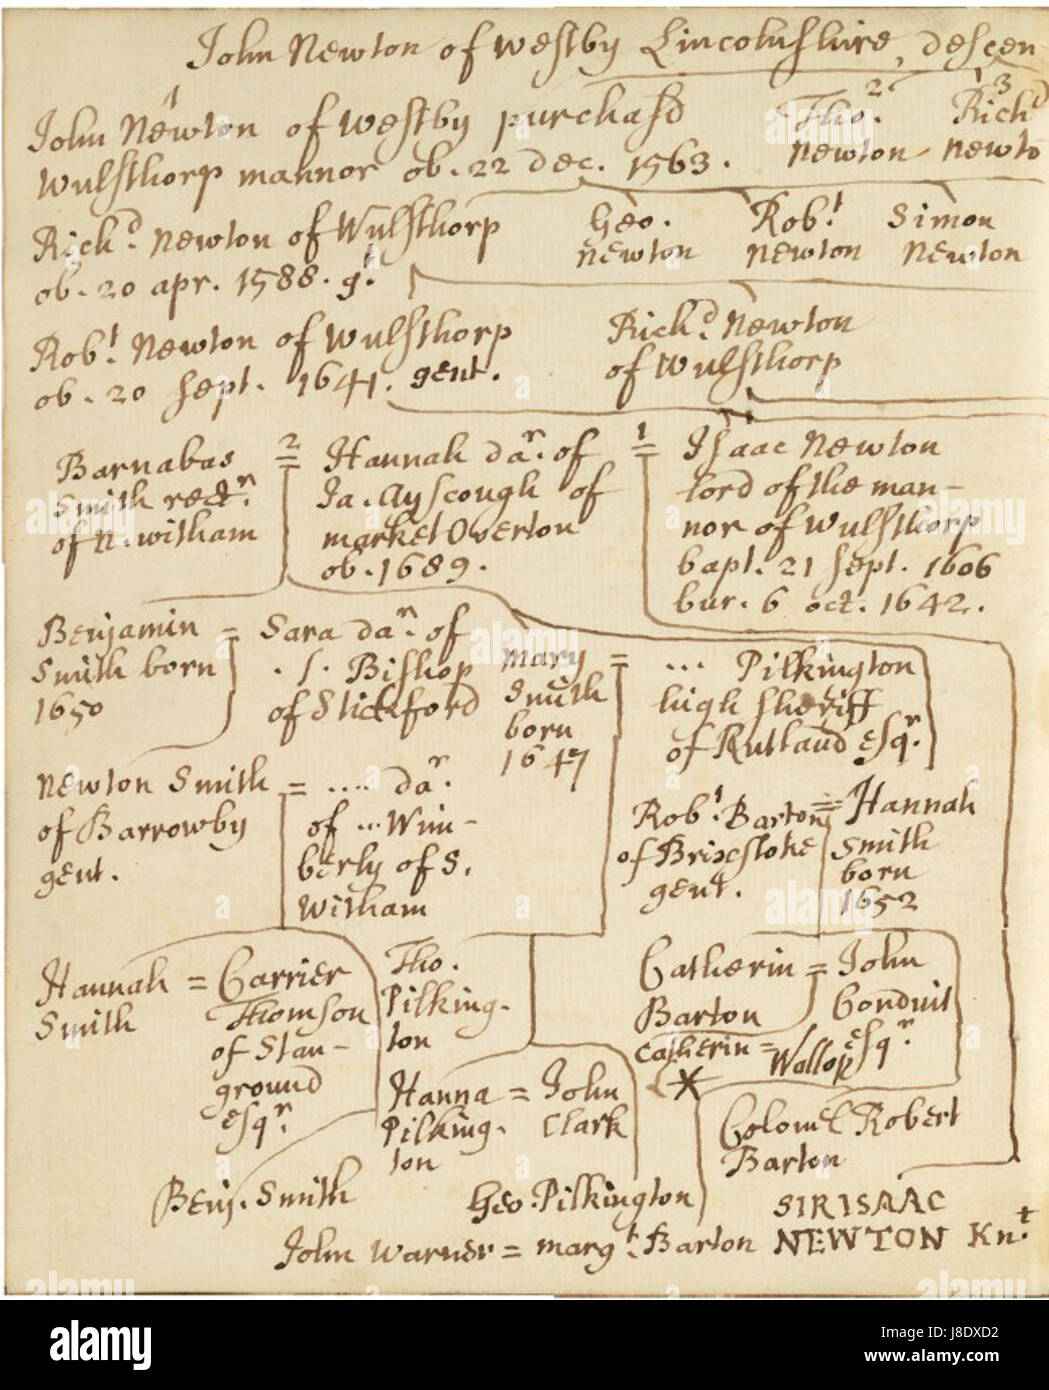 John Newton of Westby Lincolnshire, descen-
1 2 3
John Newton of Westby purchasd Tho. Rich^d
Wulsthorp mannor ob. 22 dec. 1563. Newton Newto
Rich^d. Newton of Wulsthorp Geo. Rob^t. Simon
ob. 20 apr. 1588. g^t. Newton Newton Newton
Rob^t. Newton of Wulsthorp Rich^d. Newton
ob. 20 Sept. 1641. gent. of Wulsthorp
Barnabas 2 = Hannah da^r. of 1 = Isaac Newton
Smith rect^r. Ja. Ayscough of lord of the man-
of N. witham market Overton nor of Wulsthorp
ob. 1689. bapt. 21 Sept. 1606
bur. 6 oct. 1642.
Benjamin = Sara da^r. of
Smith born Bishop mary = ... Pilkington
1650 of Stickford Smith high sheriff
born of Rutland Esq^r.
1647
Newton Smith = .... da^r.
of Barrowby of ... Wim-
gent. berly of S.
Witham
Rob^t. Barton = Hannah
of Brixstoke Smith
gent. born
1652
Hannah = Carrier
Smith Thomson
of Stan-
ground
Esq^r.
Tho.
Pilking-
ton
Catherin = John
Barton Conduit
Esq^r.
Catherin = Wallop
Hanna = John
Pilking- Clark
ton
Colonel Robert
Barton
Benj. Smith Geo. Pilkington SIR ISAAC
John Warner = marg^t. Barton NEWTON Kn^t.
alamy
Image ID: J8DXD2
www.alamy.com